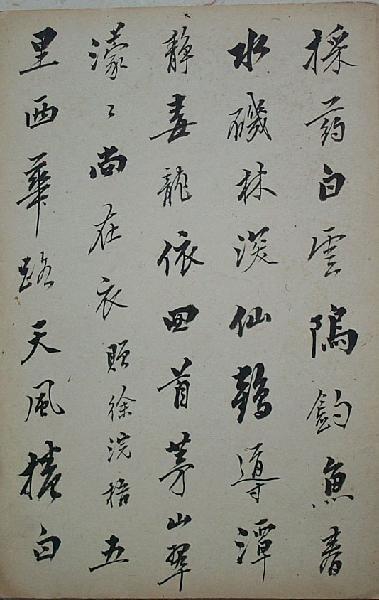 採药白雲隝釣魚春
水磯林深仙鶴導潭
静毒龍依回首茅山翠
濛〻尚在衣 贈徐浣梧 五
里西華路天風橫白